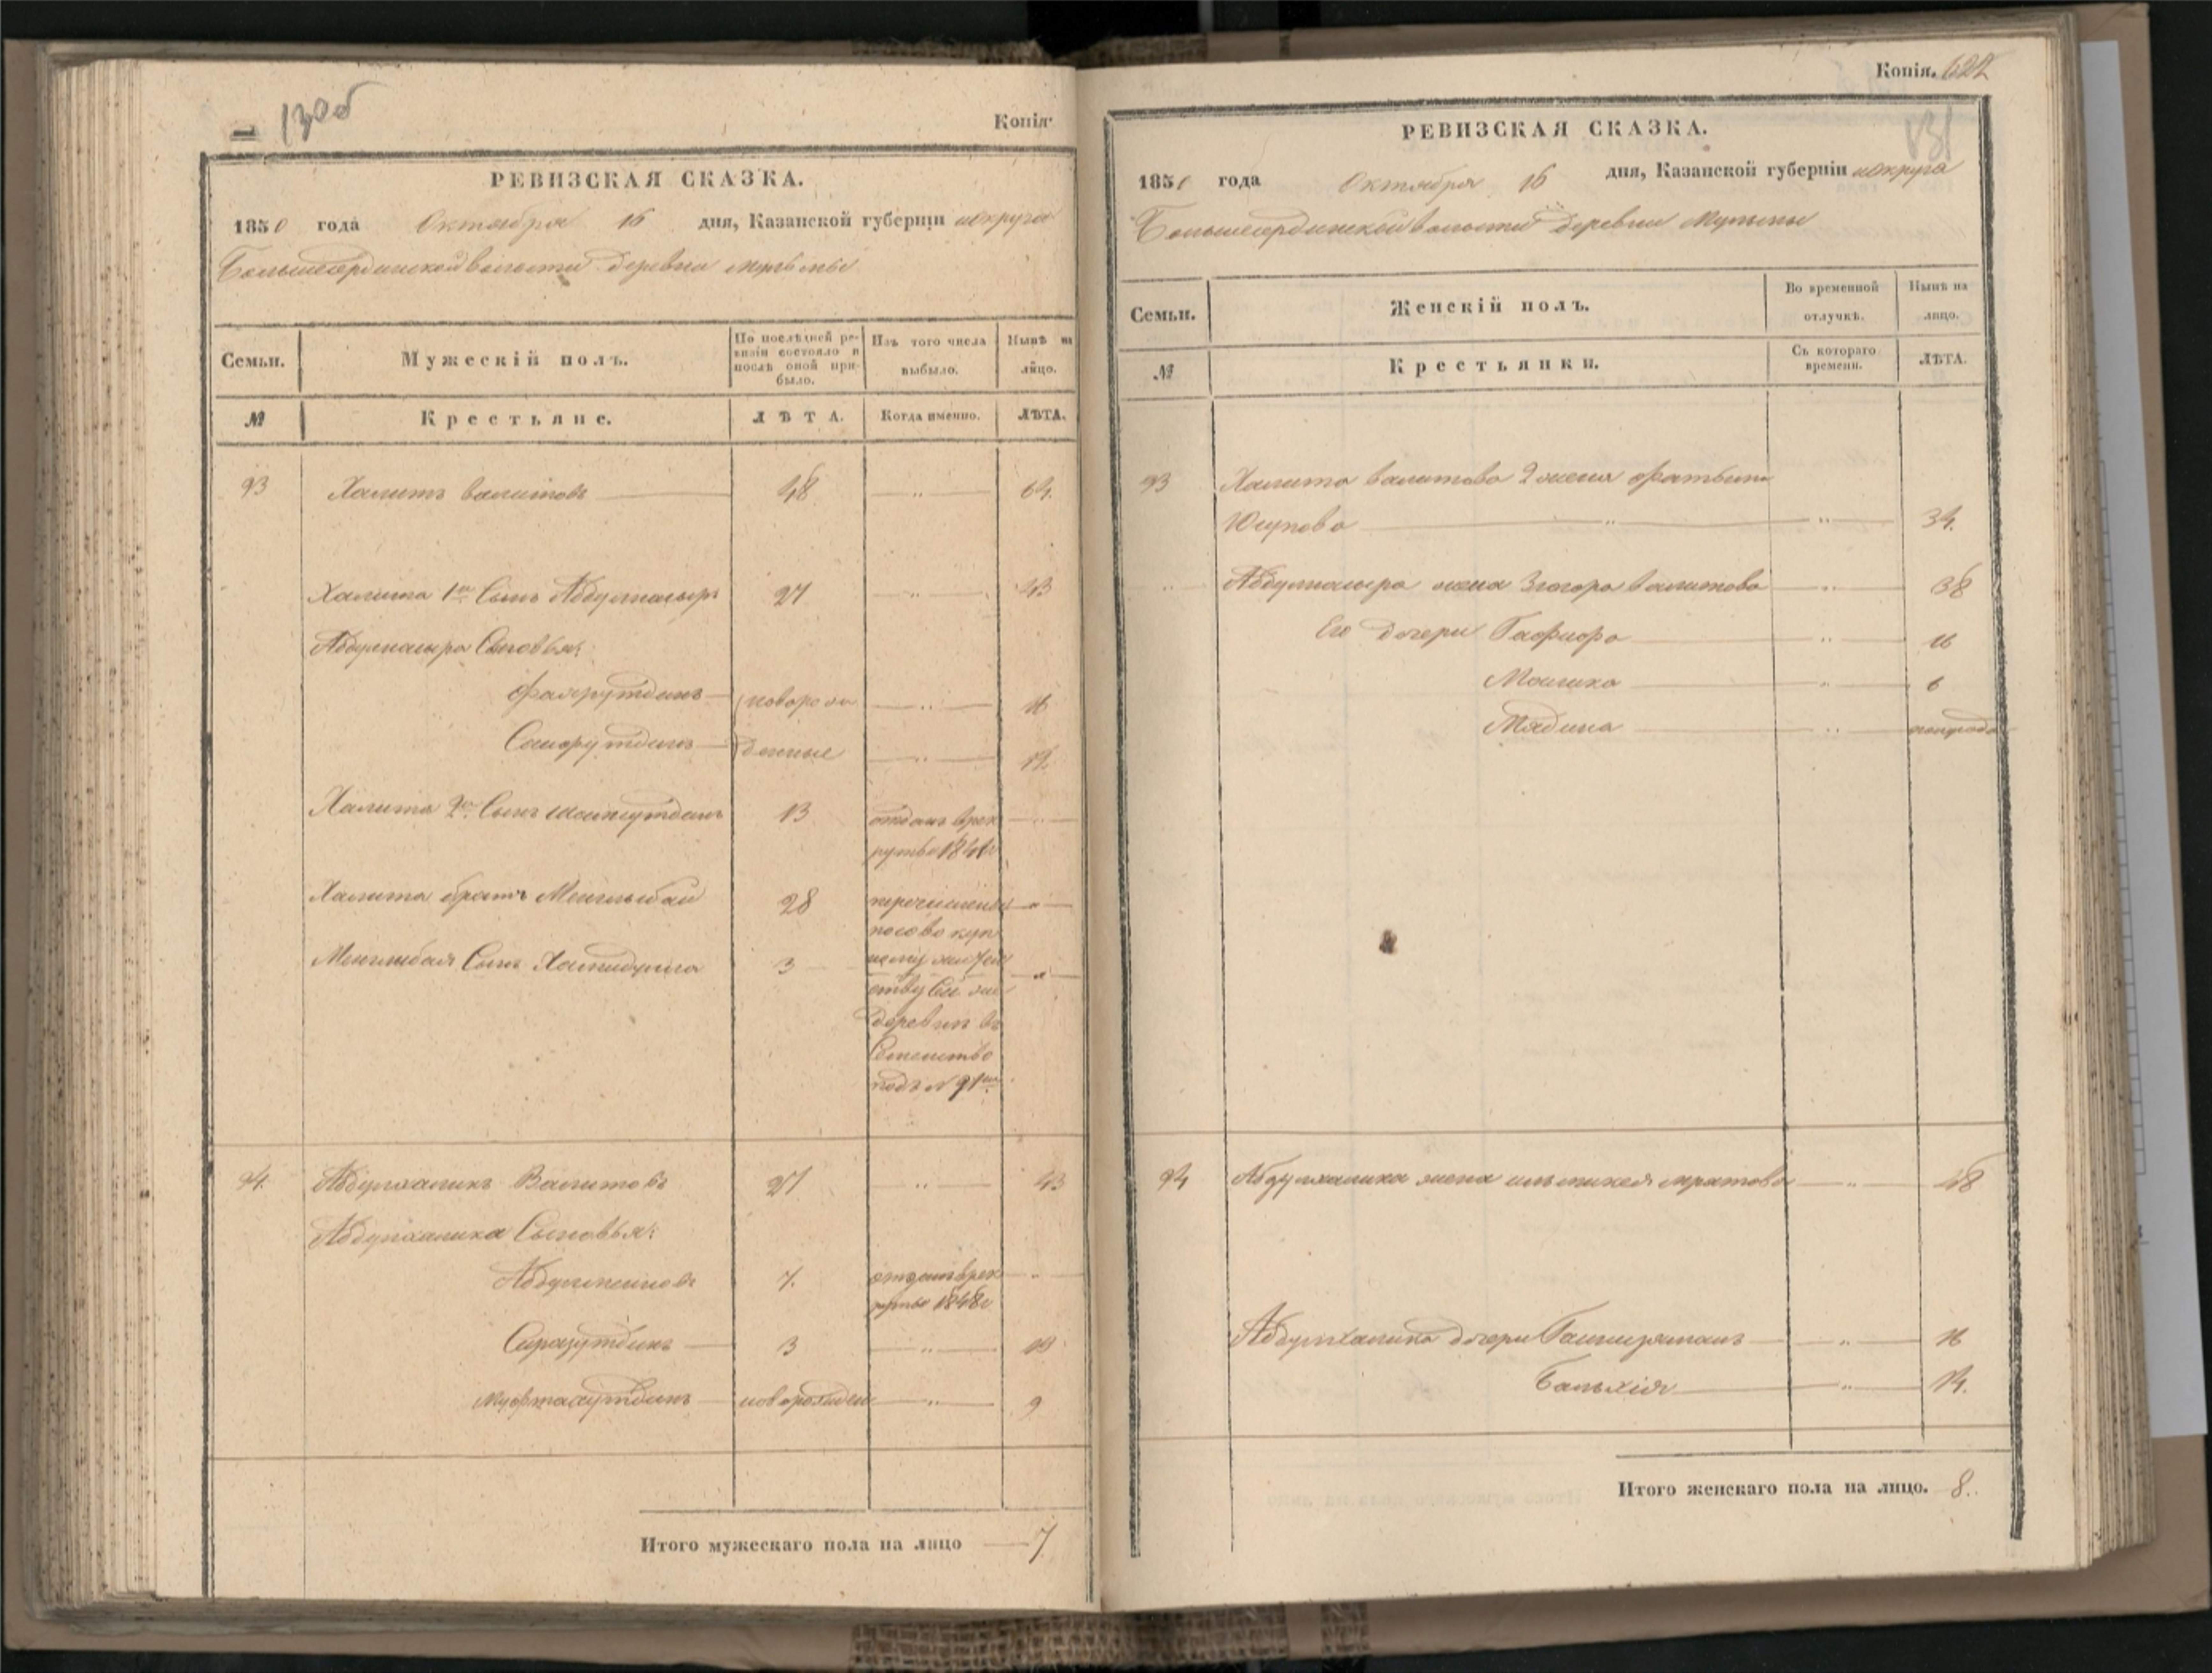 130об
Копія
РЕВИЗСКАЯ СКАЗКА.
1850 года Октября 16 дня, Казанской губерніи и округа
Большесердинской волости деревни Мульмы
Семьи.
Мужескій полъ.
По послѣдней ре-
визіи состояло и
послѣ оной при-
было.
Изъ того числа
выбыло.
Нынѣ на
лицо.
№
Крестьяне.
ЛѢТА.
Когда именно.
ЛѢТА.
93 Халитъ Валитовъ 48 " 64.
Халита 1й Сынъ Абдулнасыръ 27 " 43
Абдулнасыра Сыновья:
Фахрутдинъ новорож " 16
Сайфутдинъ денные " 12.
Халита 2й Сынъ 13 отданъ в рек "
руты 1841г
Халита братъ Менглыбай 28 перечисленъ "
Менглыбая Сынъ 3 "
деревни въ
Семейство
подъ № 91м
94. Абдулхаликъ Валитовъ 27 " 43
Абдулхалика Сыновья:
7. отданъ в рек "
руты 1848г
Сиразутдинъ 3 " 19
Мифтахутдинъ новорожден " 9
Итого мужескаго пола на лицо 7
Копія. 622
131
РЕВИЗСКАЯ СКАЗКА.
1850 года Октября 16 дня, Казанской губерніи и округа
Большесердинской волости деревни Мульмы
Семьи.
Женскій полъ.
Во временной
отлучкѣ.
Нынѣ на
лицо.
№
Крестьянки.
Съ котораго
времени.
ЛѢТА.
93 Халита Валитова 2 жена
Юсупова " 34.
Абдулнасыра жена Зюгора Валитова " 38
Его дочери Гафифа " 16
" 6
Мядина " полугода
94 Абдулхалика жена " 48
Абдулхалика дочери " 16
Бальхія " 14.
Итого женскаго пола на лицо. 8.